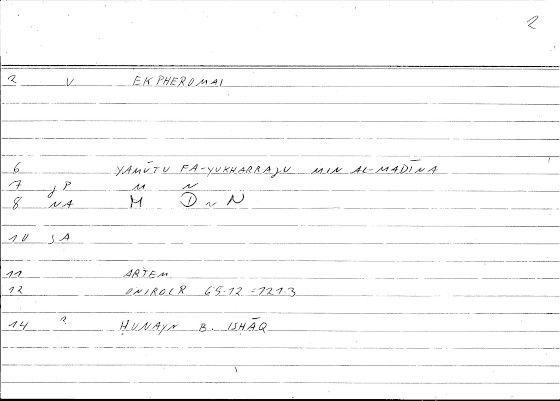 2
2 V EKPHEROMAI
6 YAMŪTU FA-YUKHARRAJU MIN AL-MADĪNA
7 jP M N
8 NA M D ~ N
10 jA
11 ARTEM
12 ONIROCR 65.12 = 121.3
14 ḤUNAYN B. ISḤĀQ